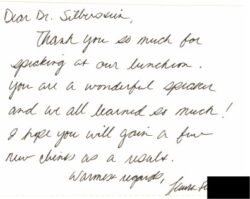 Dear Dr. Silberstein,
Thank you so much for
speaking at our luncheon.
You are a wonderful speaker
and we all learned so much!
I hope you will gain a few
new clients as a result.
Warmest regards,